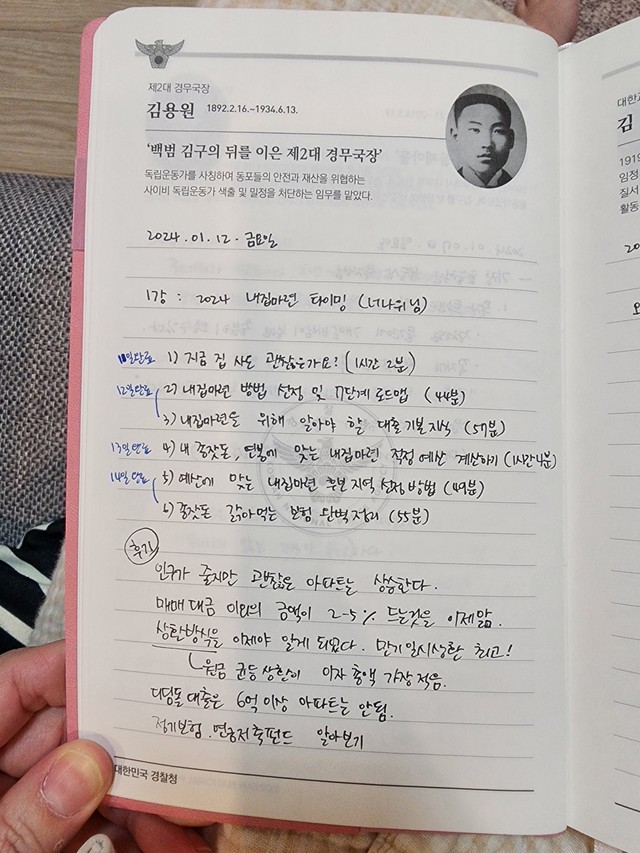 제2대 경무국장
김용원 1892.2.16.~1934.6.13.
'백범 김구의 뒤를 이은 제2대 경무국장'
독립운동가를 사칭하여 동포들의 안전과 재산을 위협하는
사이비 독립운동가 색출 및 밀정을 처단하는 임무를 맡았다.
2024.01.12. 금요일
1강 : 2024 내집마련 타이밍 (너나위님)
11일완료 1) 지금 집 사도 괜찮은가요? (1시간 2분)
12일완료 2) 내집마련 방법 선정 및 7단계 로드맵 (44분)
3) 내집마련을 위해 알아야 할 대출 기본지식 (57분)
13일 완료 4) 내 종잣돈, 연봉에 맞는 내집마련 적정 예산 계산하기 (1시간 4분)
14일 완료 5) 예산에 맞는 내집마련 후보 지역 선정 방법 (49분)
6) 종잣돈 갉아먹는 보험 완벽정리 (55분)
후기
인구가 줄지만 괜찮은 아파트는 상승한다.
매매 대금 이외의 금액이 2-5% 드는것을 이제 앎.
상환방식을 이제야 알게 되었다. 만기일시상환 최고!
원금 균등 상환이 이자 총액 가장 적음.
디딤돌 대출은 6억 이상 아파트는 안됨.
정기보험. 연금저축펀드 알아보기
대한민국 경찰청
대한
김
1919
임정
질서
활동
20